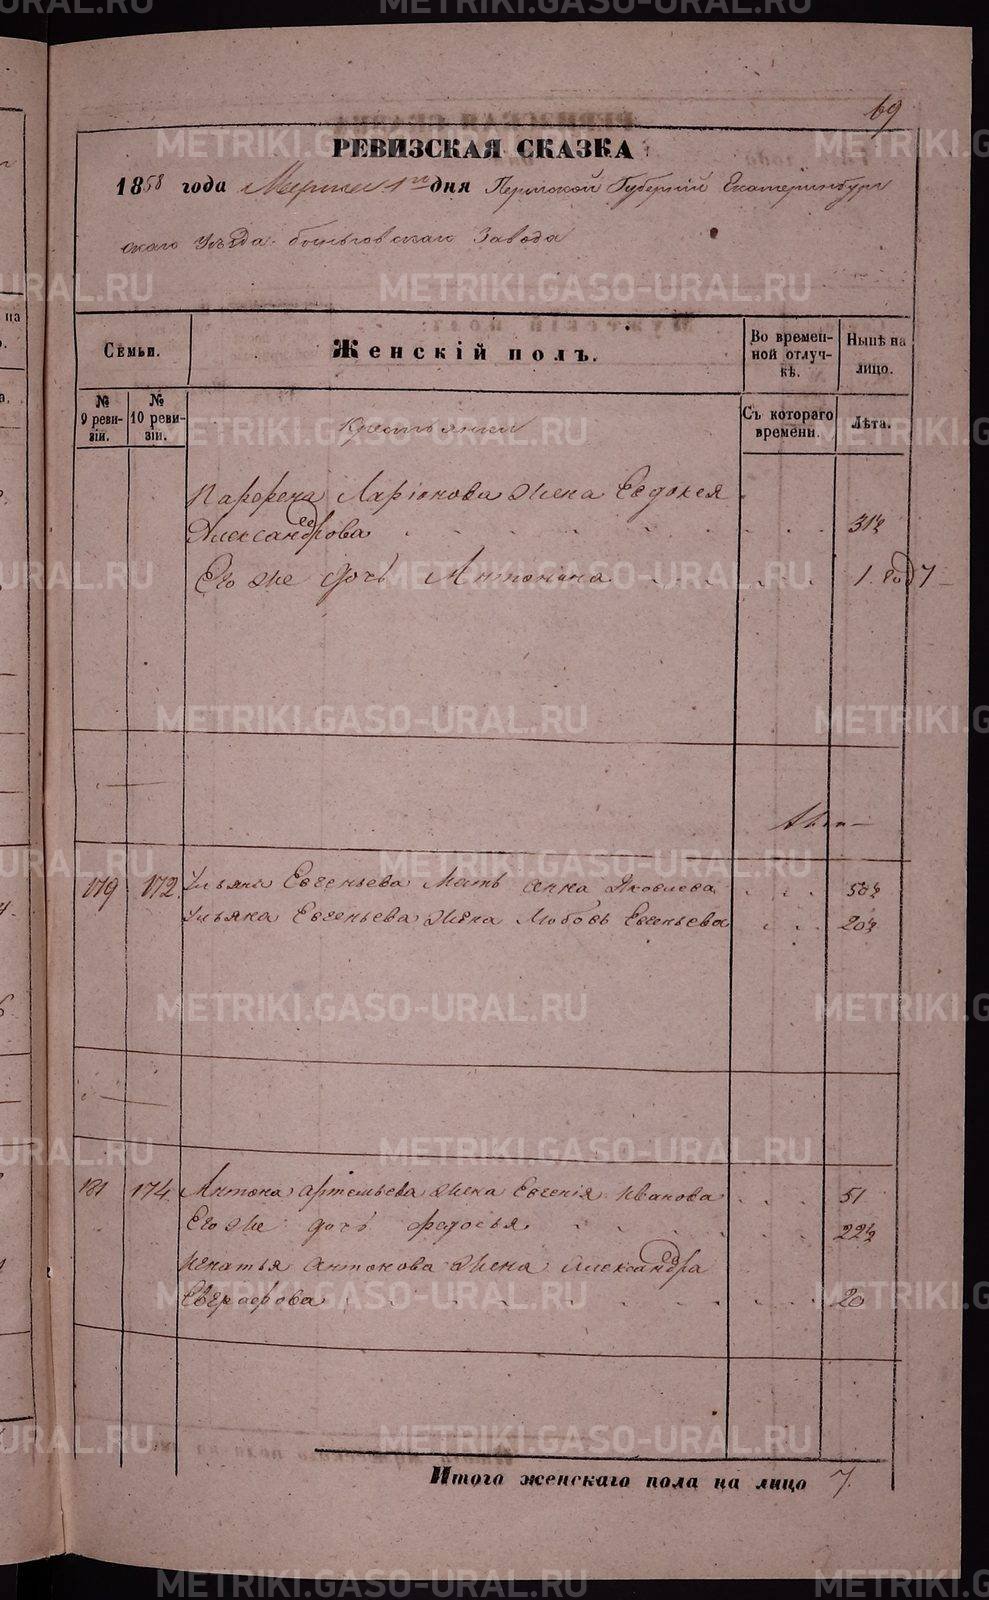 69
РЕВИЗСКАЯ СКАЗКА
1858 года Марта 1го дня Пермской Губерніи Екатеринбург
скаго Уѣзда
Завода
Семьи.
Женскій полъ.
Во времен-
ной отлуч-
кѣ.
Нынѣ на
лицо.
№
9 реви-
зіи.
№
10 реви-
зіи.
Съ котораго
времени.
Лѣта.
Крестьянки
Ларіонова жена Евдокея
Александрова 31½
Его же дочь Антонина 1. годъ
179 172 Ульяна Евгеньева Мать Анна Яковлева 50½
Ульяна Евгеньева жена Любовь Евгеньева 20½
181 174 Антона Артемьева жена Евгенія Иванова 51
Его же дочь Федосья 22½
Игнатья Антонова жена Александра
20
Итого женскаго пола на лицо 7.
METRIKI.GASO-URAL.RU